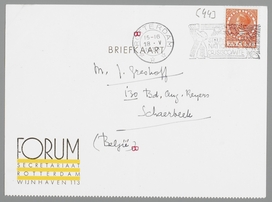 C443
ROTTERDAM
BRIEFKAART
M. J. Greshoff
130 Bd. Aug. Reyers
Schaerbeek
(België)
FORUM
SECRETARIAAT
ROTTERDAM
WIJNHAVEN 113